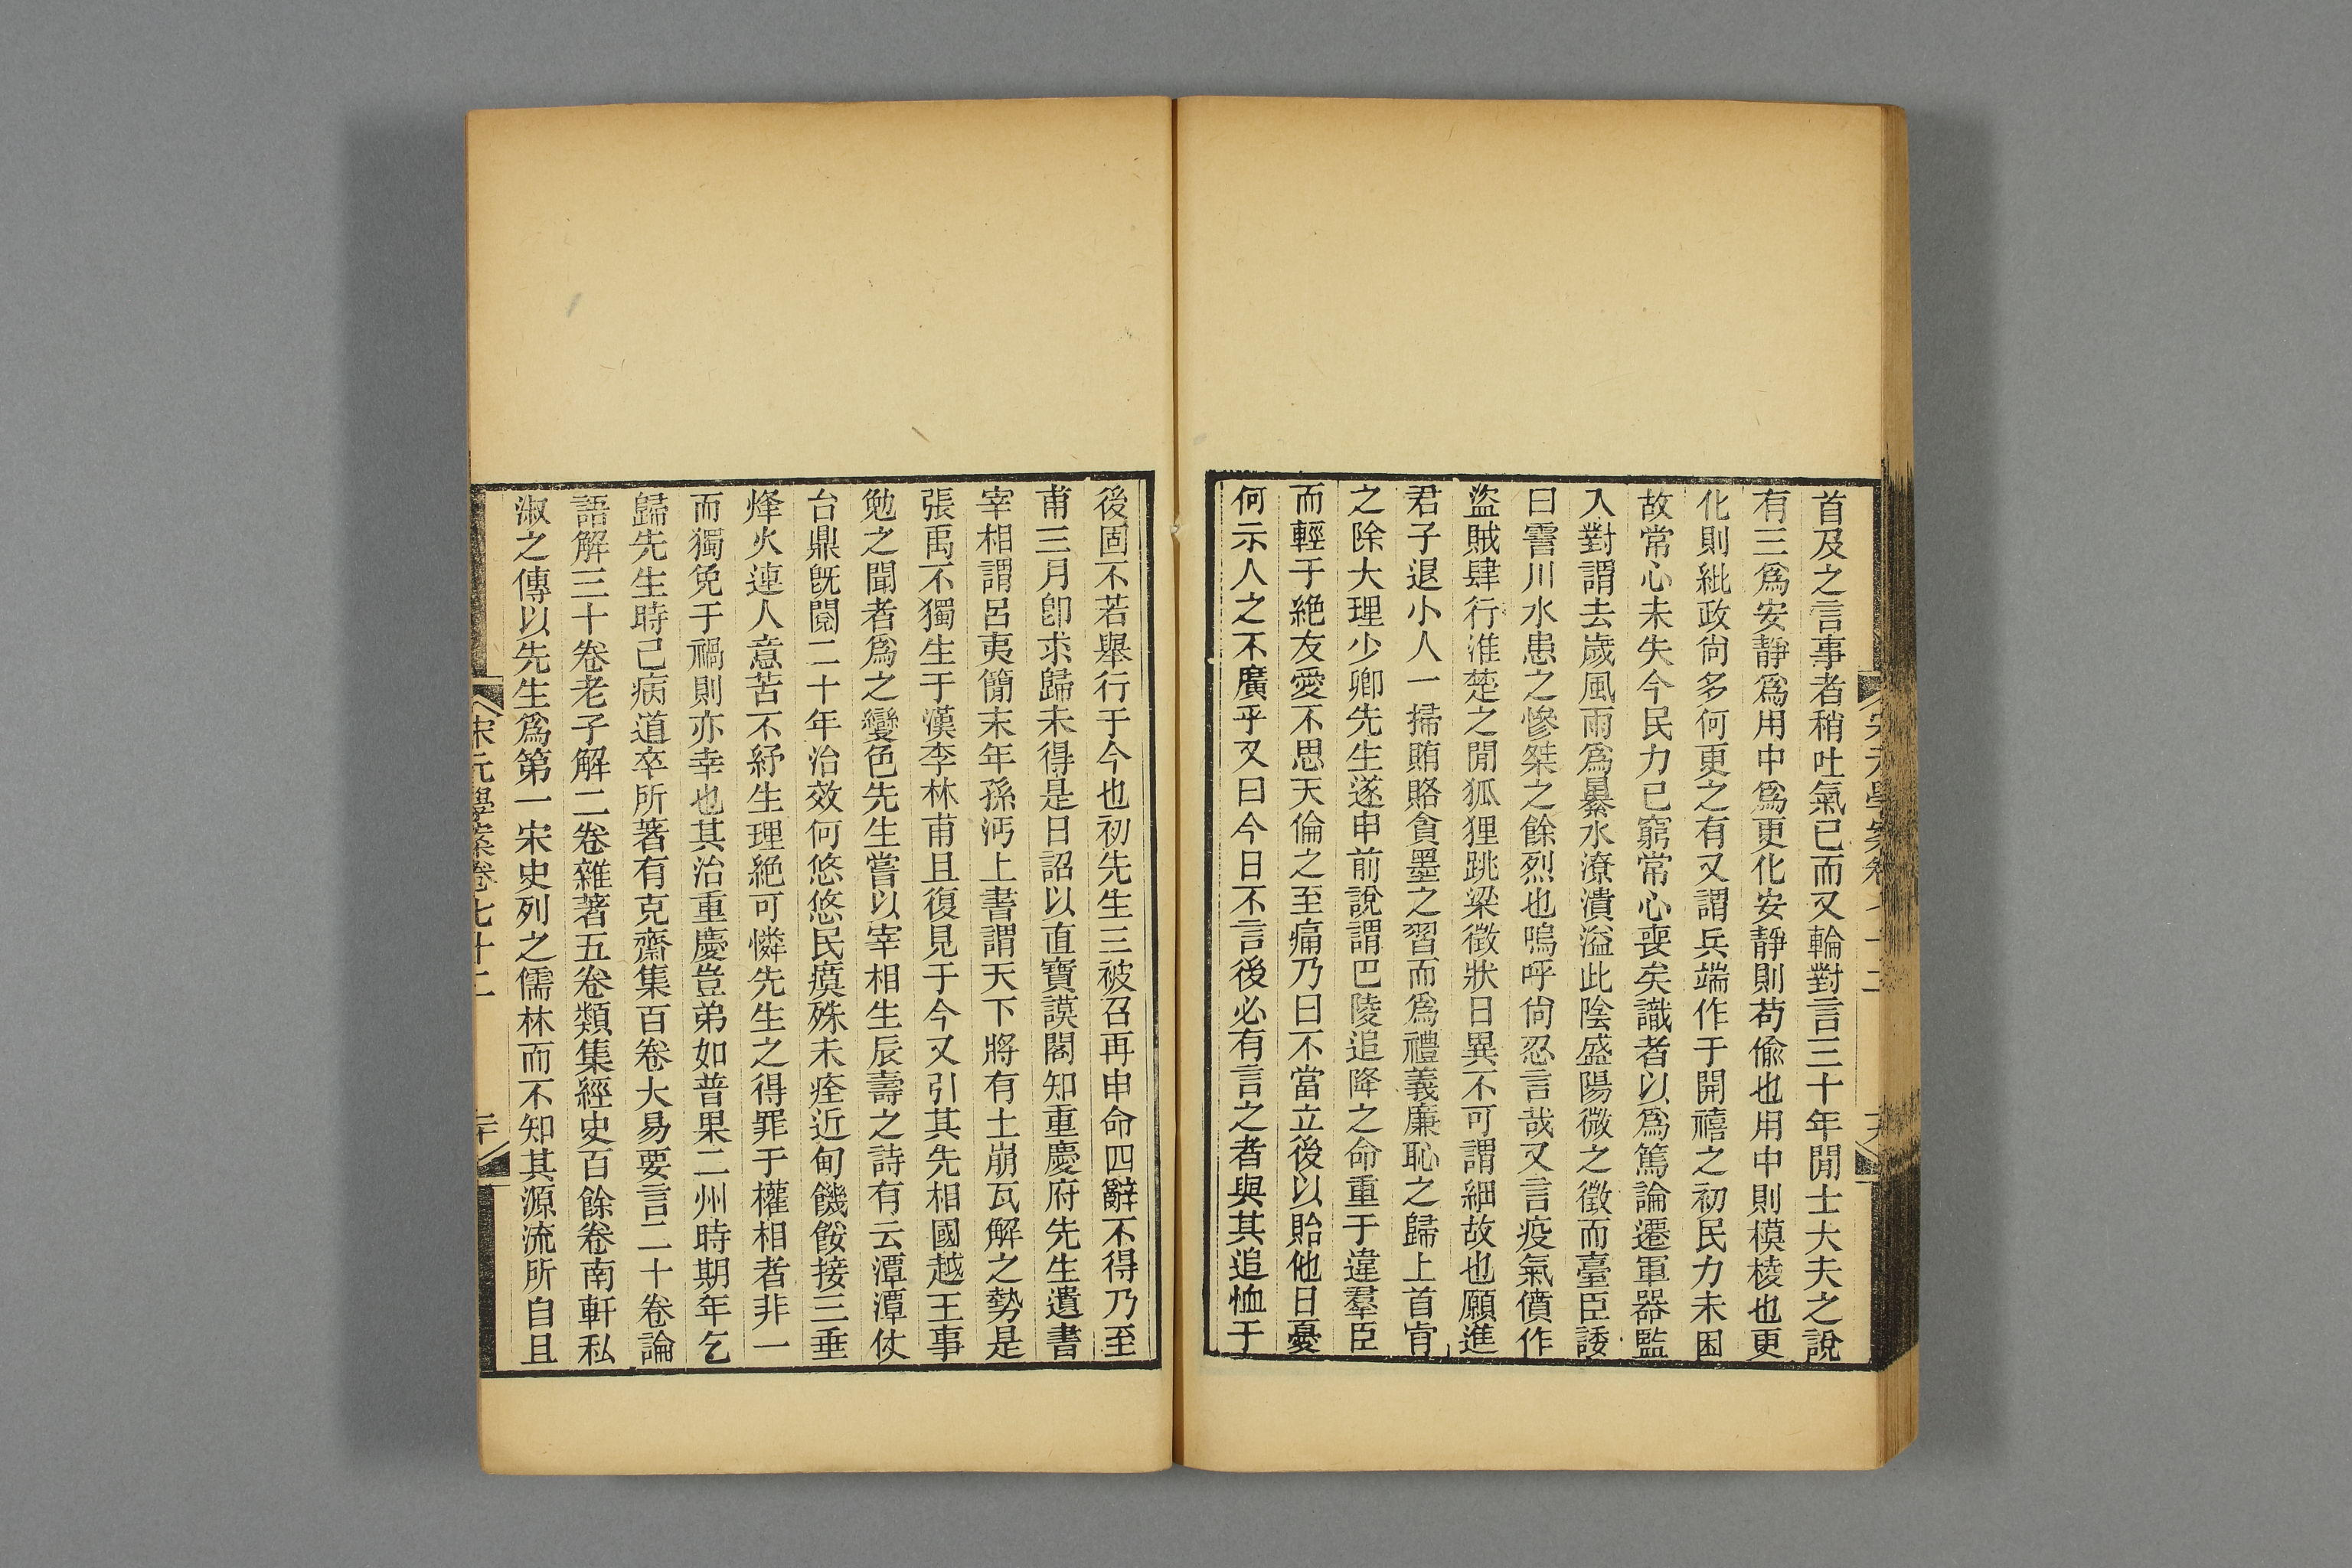 首及之言事者稍吐氣已而又輪對言三十年閒士大夫之說
有三爲安靜爲用中爲更化安靜則苟偸也用中則模棱也更
化則紕政尙多何更之有又謂兵端作于開禧之初民力未困
故常心未失今民力已窮常心喪矣識者以爲篤論遷軍器監
入對謂去歲風雨爲暴水潦潰溢此陰盛陽微之徵而臺臣諉
曰霅川水患之慘桀之餘烈也嗚呼尙忍言哉又言疫氣僨作
盜賊肆行淮楚之閒狐狸跳梁徵狀日異不可謂細故也願進
君子退小人一掃賄賂貪墨之習而爲禮義廉恥之歸上首肯
之除大理少卿先生遂申前說謂巴陵追降之命重于違羣臣
而輕于絕友愛不思天倫之至痛乃曰不當立後以貽他日憂
何示人之不廣乎又曰今日不言後必有言之者與其追恤于
宋元學案卷七十二
十九
後固不若舉行于今也初先生三被召再申命四辭不得乃至
甫三月卽求歸未得是日詔以直寶謨閣知重慶府先生遺書
宰相謂呂夷簡末年孫沔上書謂天下將有土崩瓦解之勢是
張禹不獨生于漢李林甫且復見于今又引其先相國越王事
勉之聞者爲之變色先生嘗以宰相生辰壽之詩有云潭潭伏
台鼎旣閱二十年治效何悠悠民瘼殊未痊近甸饑餒接三垂
烽火連人意苦不紓生理絕可憐先生之得罪于權相者非一
而獨免于禍則亦幸也其治重慶豈弟如普果二州時期年乞
歸先生時已病道卒所著有克齋集百卷大易要言二十卷論
語解三十卷老子解二卷雜著五卷類集經史百餘卷南軒私
淑之傳以先生爲第一宋史列之儒林而不知其源流所自且
宋元學案卷七十二
二十